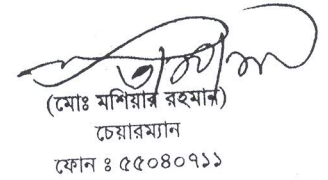 (মোঃ মশিয়ার রহমান)
চেয়ারম্যান
ফোন ঃ ৫৫০৪০৭১১